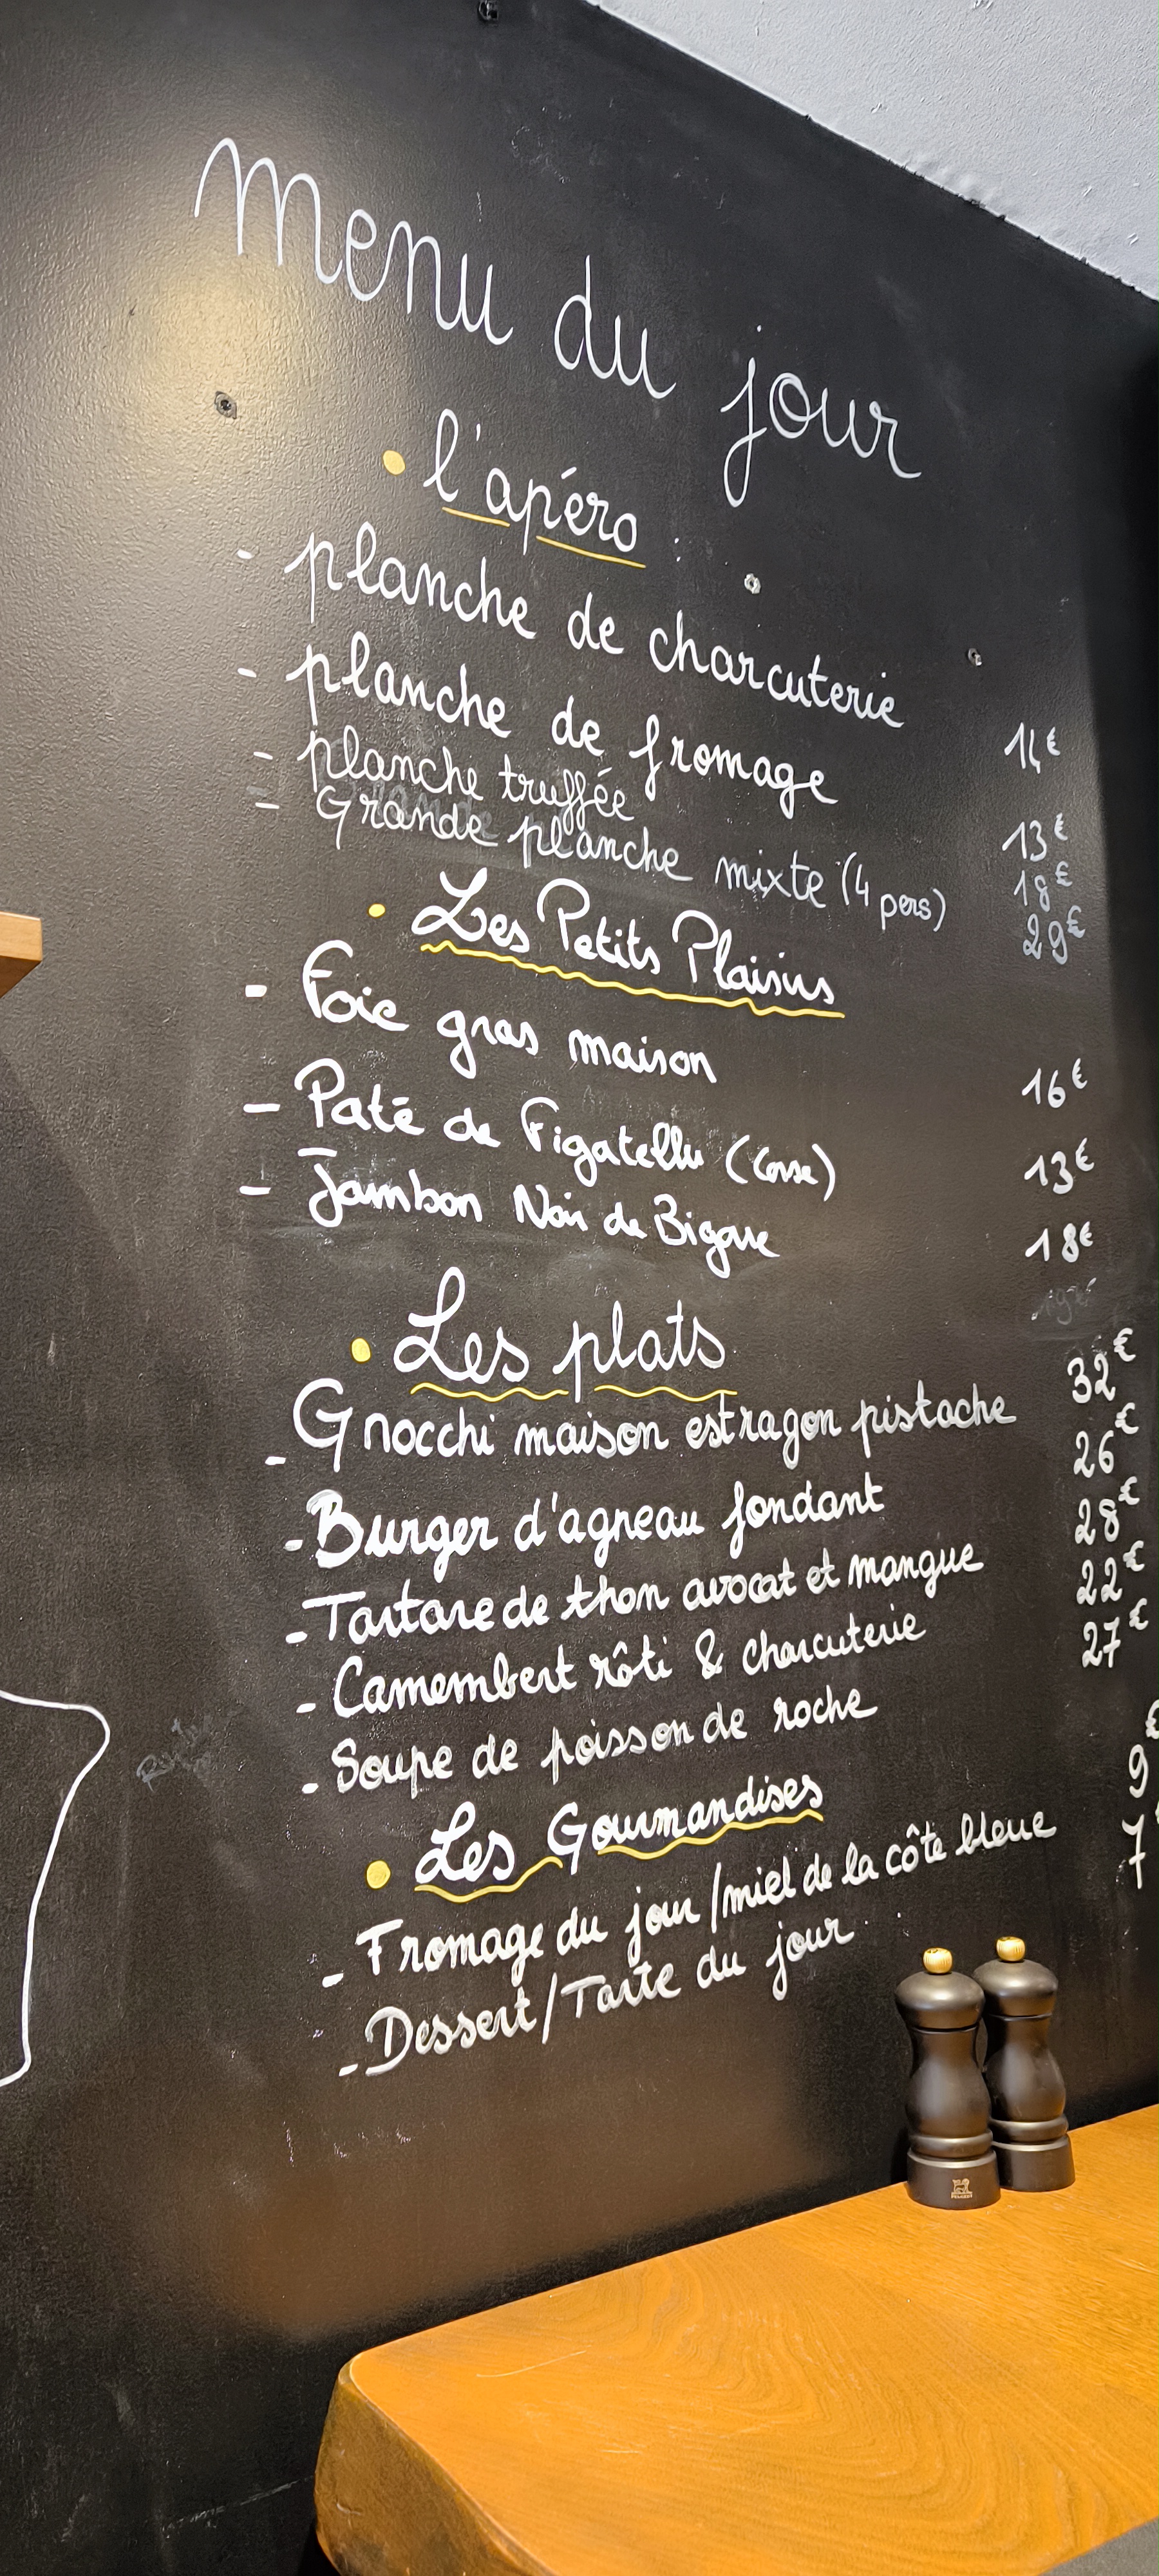 Menu du jour
• l'apéro :
- planche de charcuterie 14€
- planche de fromage 13€
- planche truffée 18€
- Grande planche mixte (4 pers) 29€
• Les Petits Plaisirs
- Foie gras maison 16€
- Paté de Figatellu (Corse) 13€
- Jambon Noir de Bigorre 18€
• Les plats
- Gnocchi maison estragon pistache 32€
- Burger d'agneau fondant 26€
- Tartare de thon avocat et mangue 28€
- Camembert rôti & charcuterie 22€
- Soupe de poisson de roche 27€
• Les Gourmandises
- Fromage du jour/miel de la côte bleue 9€
- Dessert/Tarte du jour 7
PEUGEOT